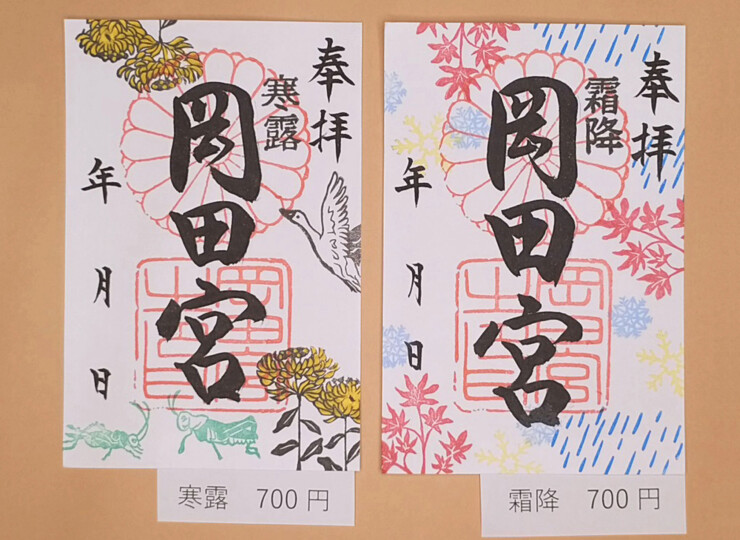 奉拝
寒露
岡田宮
年 月 日
寒露 700円
奉拝
霜降
岡田宮
年 月 日
霜降 700円